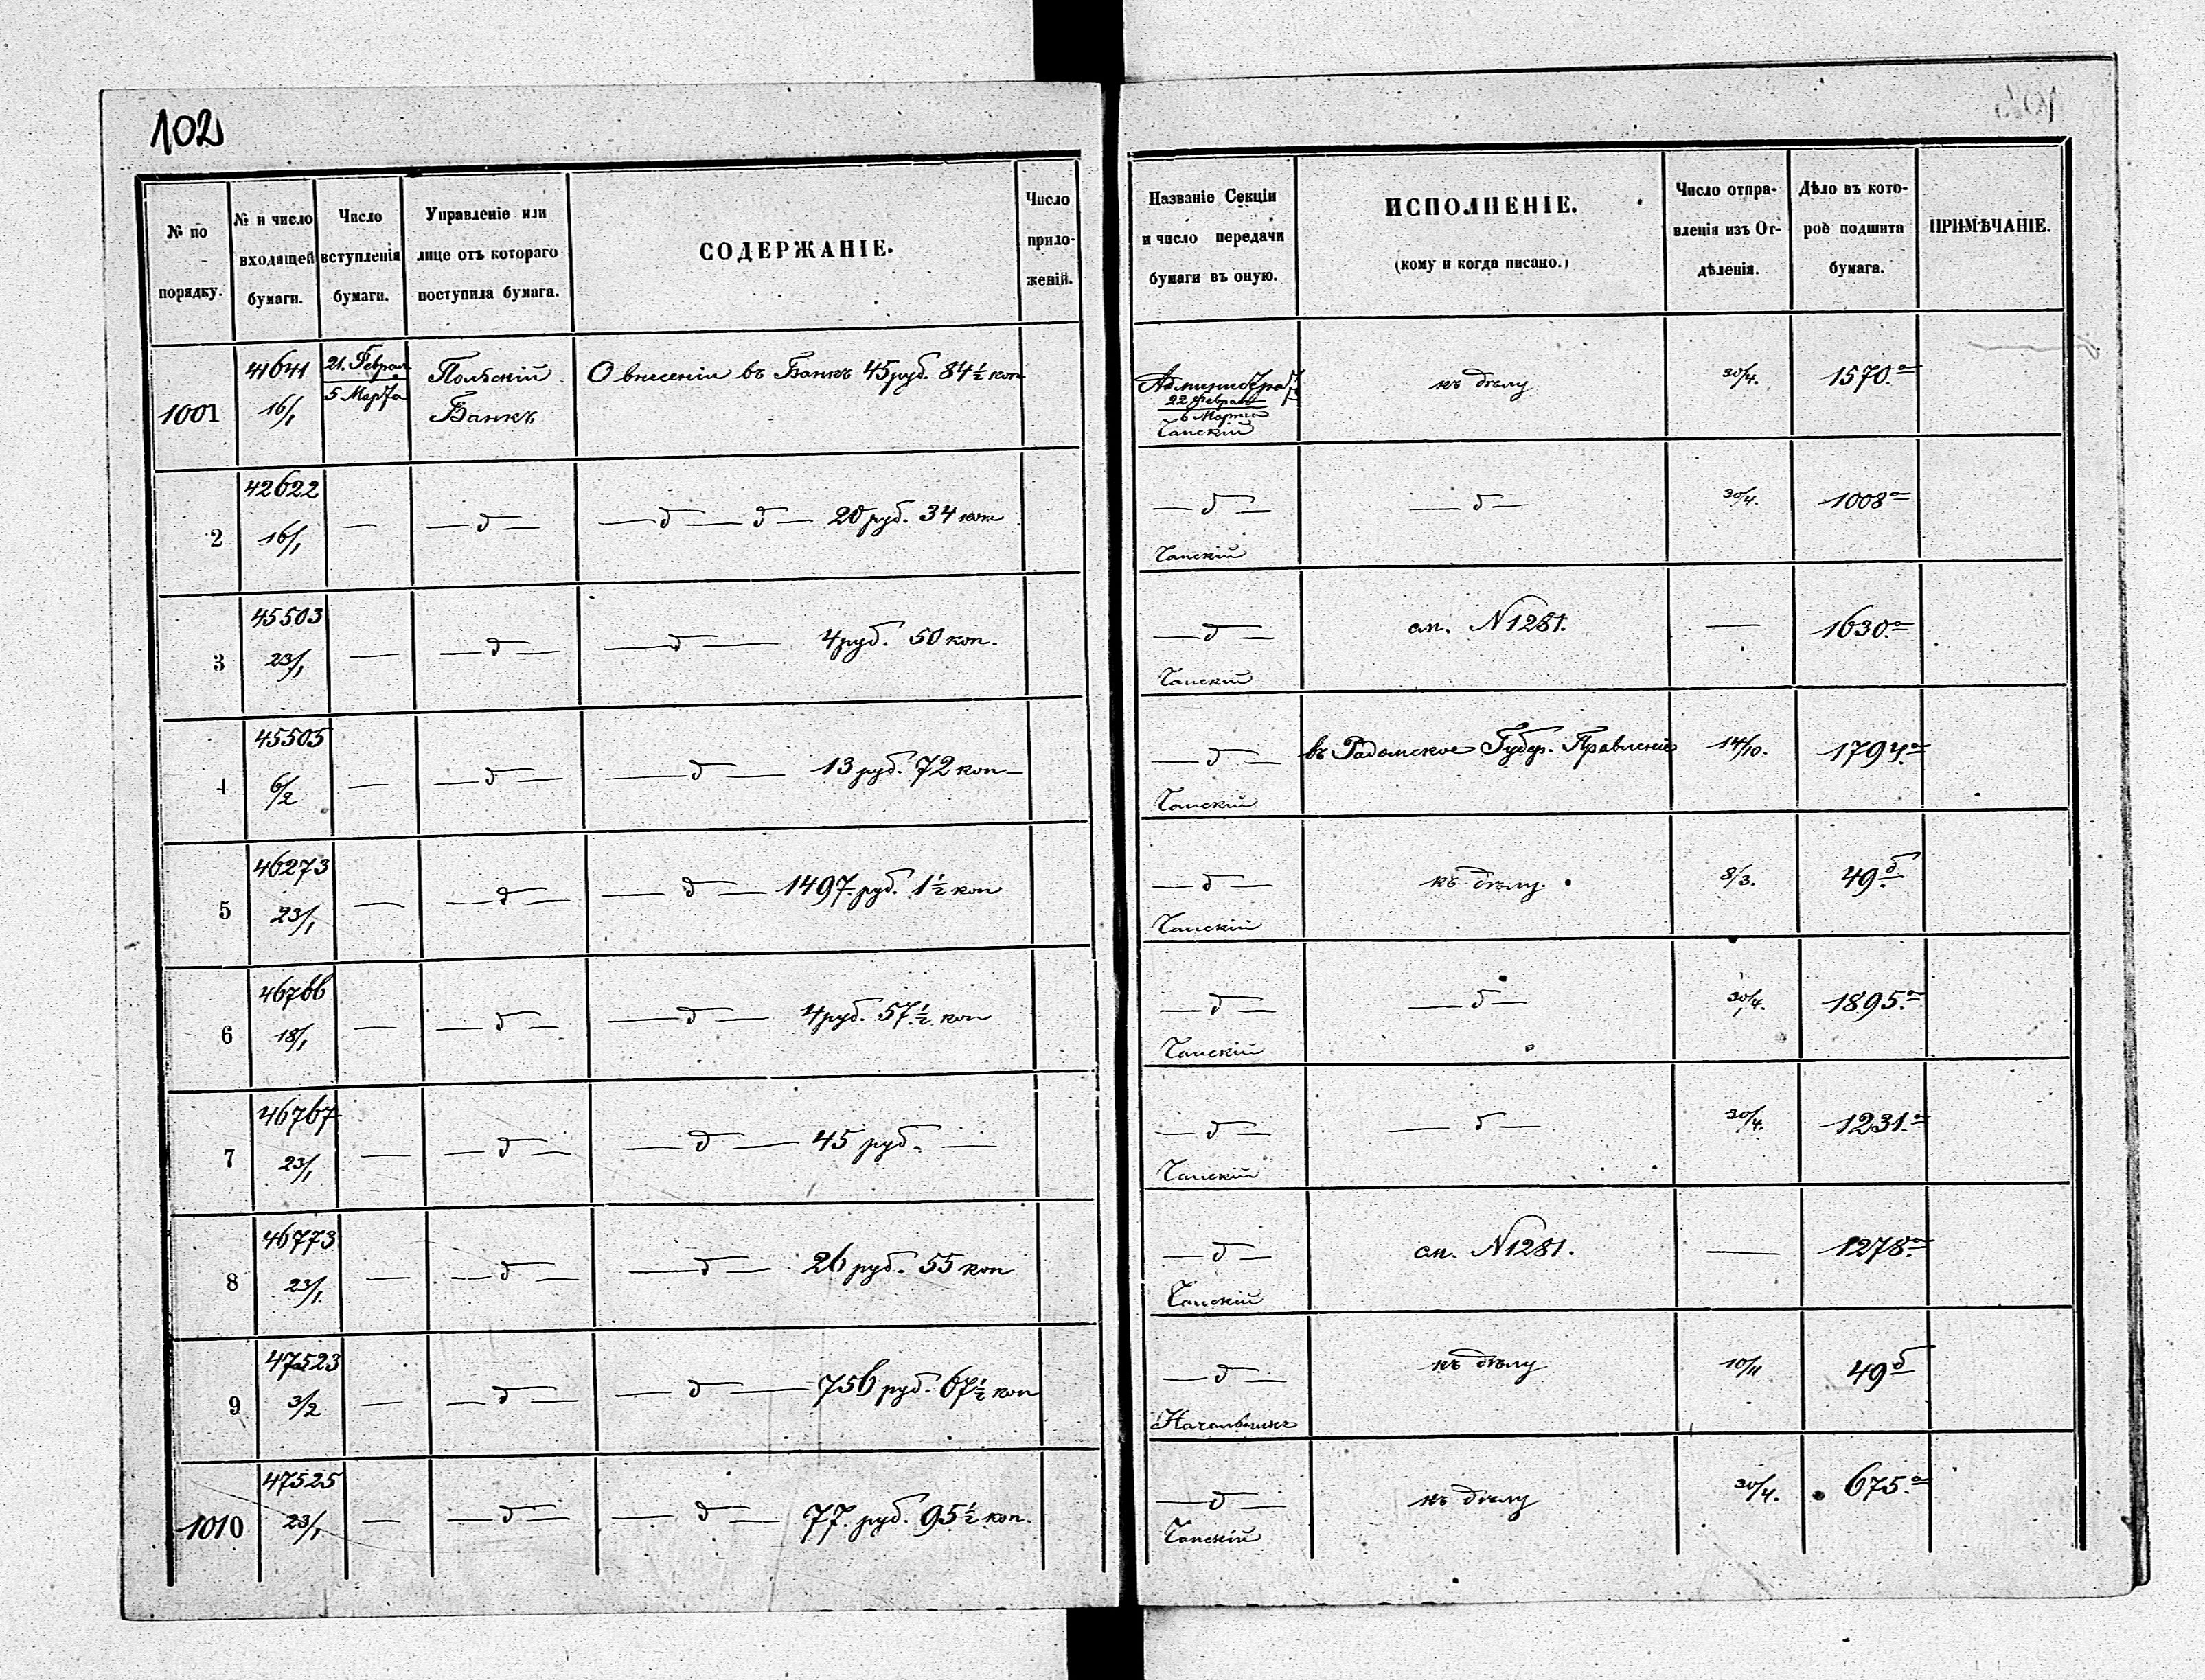 102
№ по порядку.
№ и число входящей бумаги.
Число вступленія бумаги.
Управленіе или лице отъ котораго поступила бумага.
СОДЕРЖАНІЕ.
Число приложеній.
Названіе Секціи и число передачи бумаги въ оную.
ИСПОЛНЕНІЕ.
(кому и когда писано.)
Число отправленія изъ Отдѣленія.
Дѣло въ которое подшита бумага.
ПРИМѢЧАНІЕ.
1001 41641 16/1 21. Февраля 5 Марта Польскій Банкъ О внесеніи въ Банкъ 45 руб. 84 1/2 коп 22 Февраля 6 Марта къ дѣлу 30/4. 1570.а
2 42622 16/1 — — д — — д — д — 20 руб. 34 коп — д — — д — 30/4. 1008а
3 45503 23/1 — — д — — д — 4 руб. 50 коп. — д — ап. N 1281. — 1630.а
4 45505 6/2 — — д — — д — 13 руб. 72 коп — д — въ Радомское Губер. Правленіе 14/10. 1794.а
5 46273 23/1 — — д — — д — 1497 руб. 1 1/2 коп — д — къ дѣлу. 8/3. 49.б
6 46766 18/1 — — д — — д — 4 руб. 57 1/2 коп — д — — д — 30/4. 1895.а
7 46767 23/1 — — д — — д — 45 руб. — — д — — д — 30/4. 1231.а
8 46773 23/1. — — д — — д — 26 руб. 55 коп — д — ап. N 1281. — 1278.а
9 47523 3/2 — — д — — д — 756 руб. 67 1/2 коп — д — Начальникъ къ дѣлу 10/11 49б
1010 47525 23/1. — — д — — д — 77. руб. 95 1/2 коп. — д — къ дѣлу 30/4. 675.а